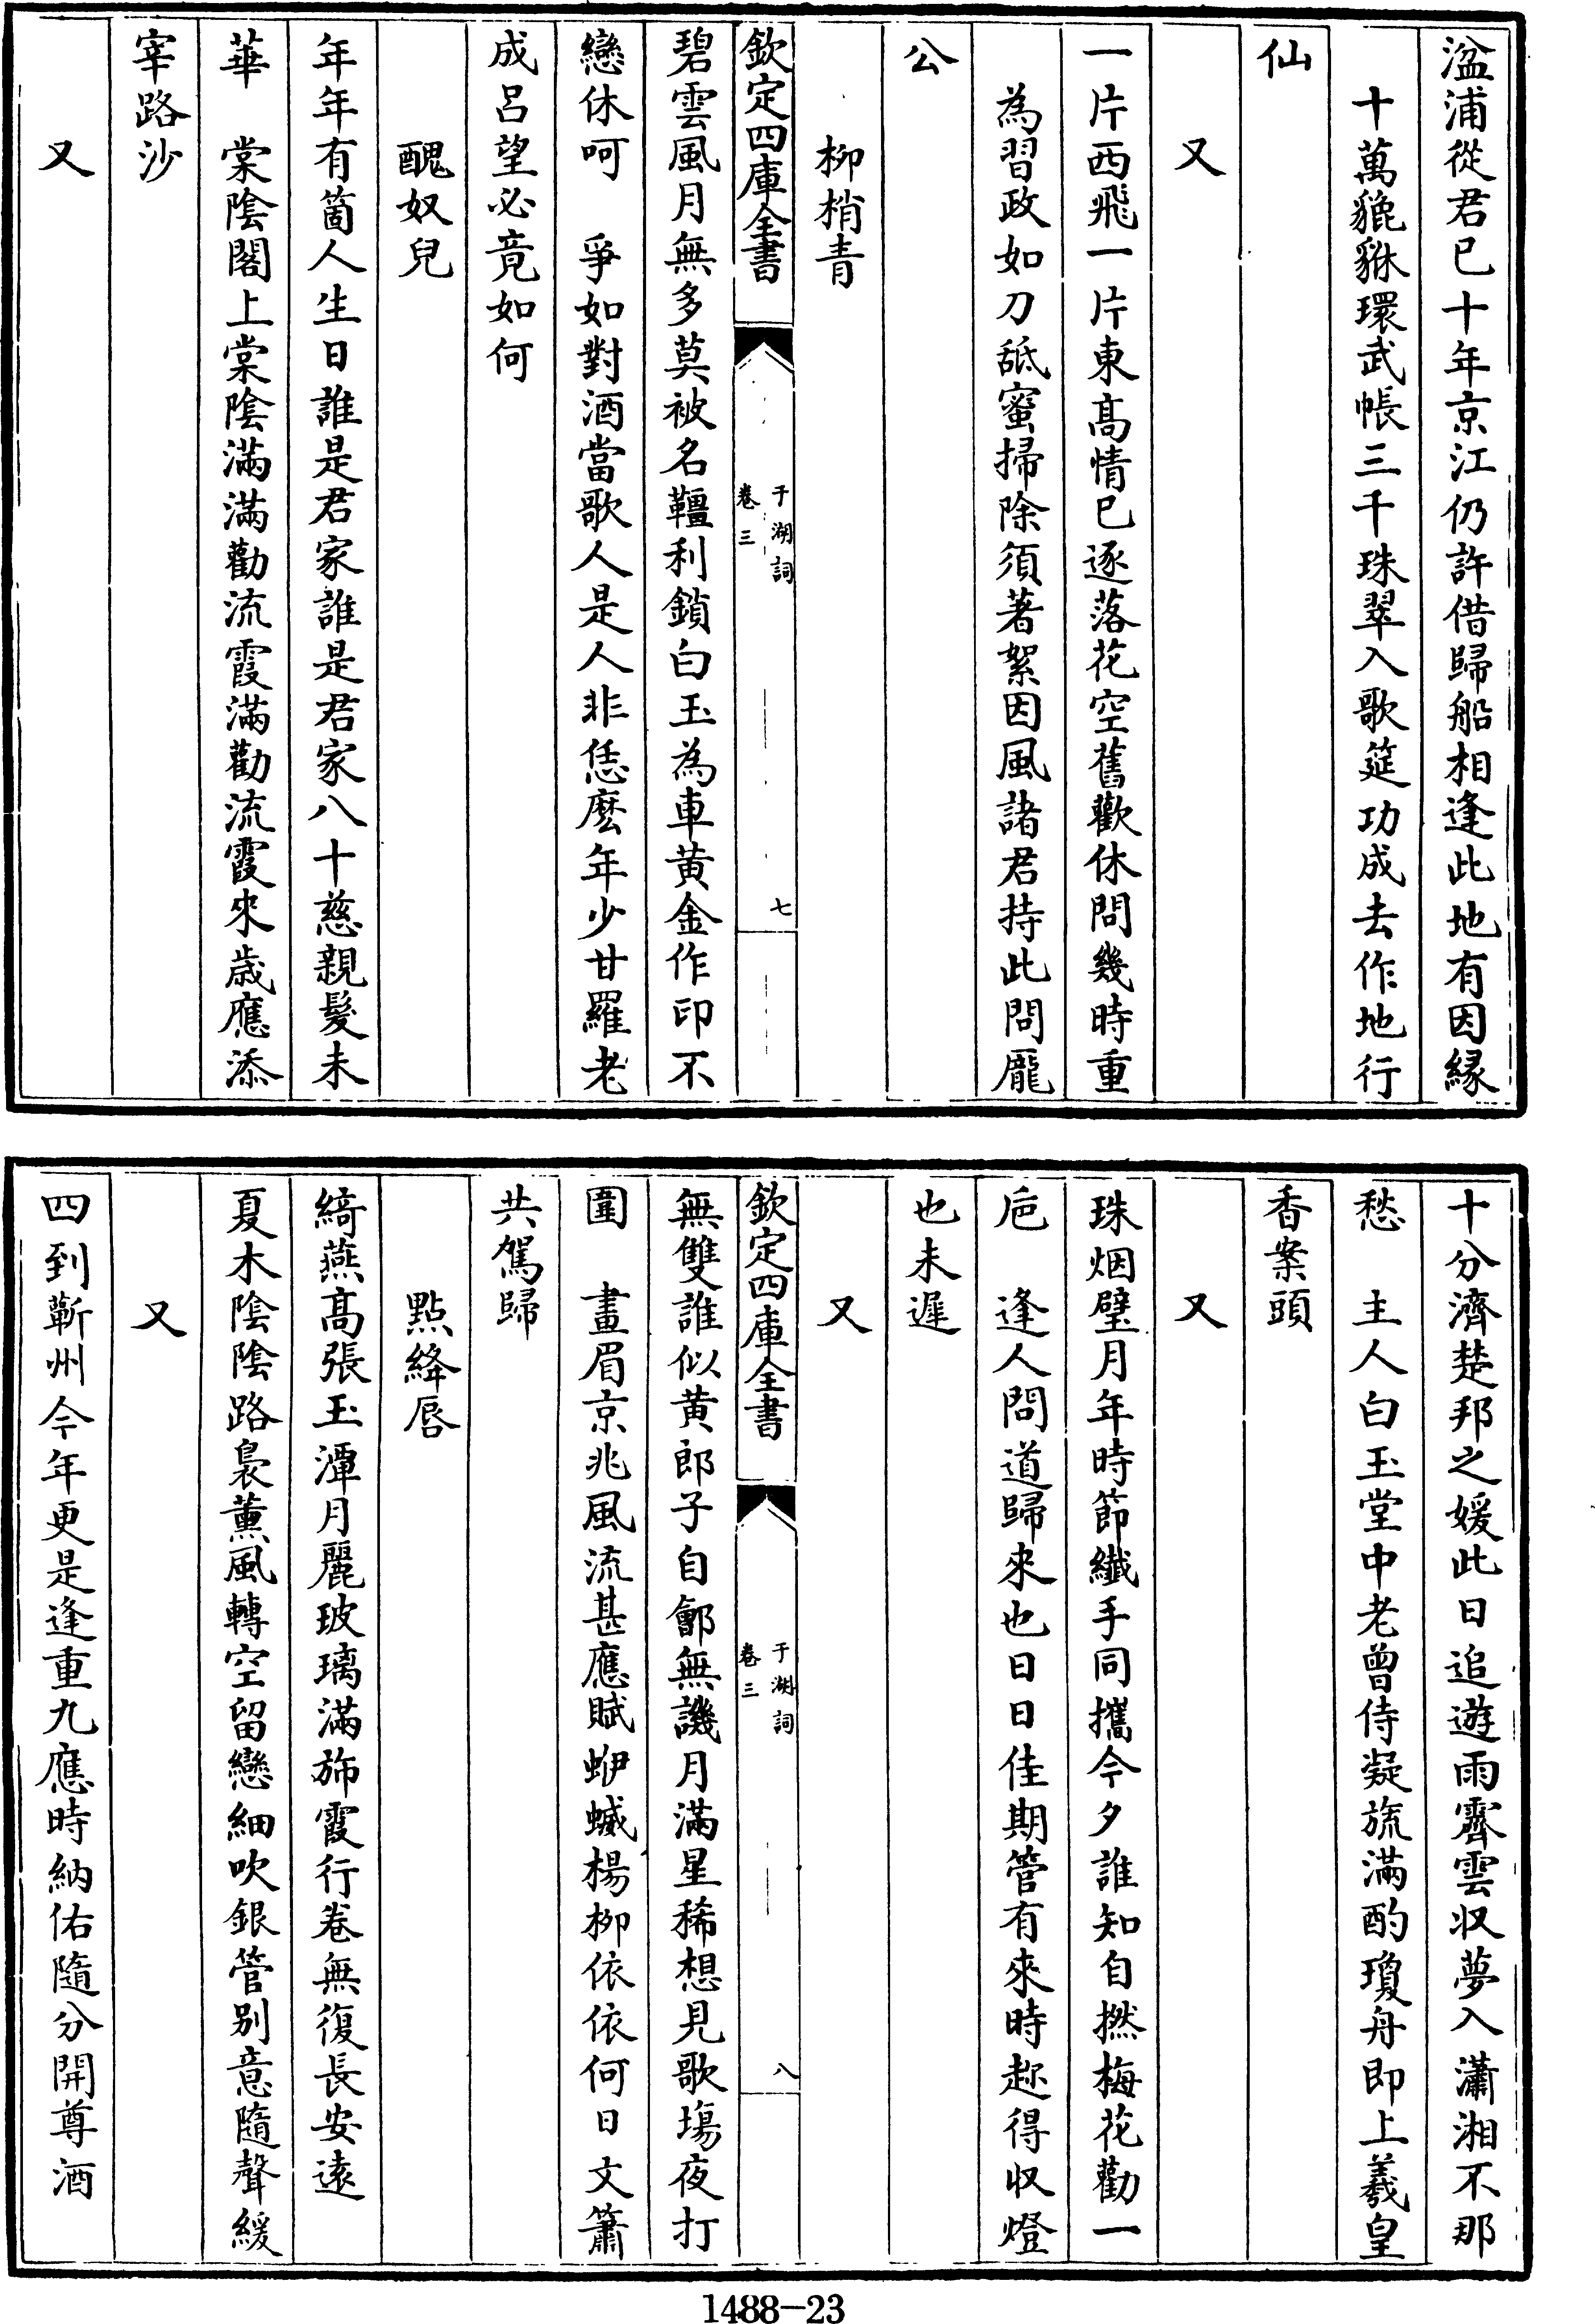 湓浦從君已十年京江仍許借歸船相逢此地有因縁
十萬貔貅環武帳三千珠翠入歌筵功成去作地行
仙
又
一片西飛一片東髙情已逐落花空舊歡休問幾時重
為習政如刀舐蜜掃除須著絮因風諸君持此問龎
公
柳梢青
欽定四庫全書
于湖詞
卷三
七
碧雲風月無多莫被名韁利鎖白玉為車黄金作印不
戀休呵　爭如對酒當歌人是人非恁麽年少甘羅老
成呂望必竟如何
醜奴兒
年年有箇人生日誰是君家誰是君家八十慈親髮未
華　棠陰閣上棠陰滿滿勸流霞滿勸流霞來歳應添
宰路沙
又
十分濟楚邦之媛此日追遊雨霽雲収夢入瀟湘不那
愁　主人白玉堂中老曾侍凝旒滿酌瓊舟即上羲皇
香案頭
又
珠烟璧月年時節纎手同攜今夕誰知自撚梅花勸一
巵　逢人問道歸來也日日佳期管有來時趂得収燈
也未遲
又
欽定四庫全書
于湖詞
卷三
八
無雙誰似黄郎子自鄶無譏月滿星稀想見歌塲夜打
圍　畫眉京兆風流甚應賦蛜蝛楊柳依依何日文簫
共駕歸
點絳唇
綺燕髙張玉潭月麗玻璃滿斾霞行卷無復長安遠
夏木陰陰路裊薫風轉空留戀細吹銀管别意隨聲緩
又
四到蘄州今年更是逢重九應時納佑隨分開尊酒
1488-23